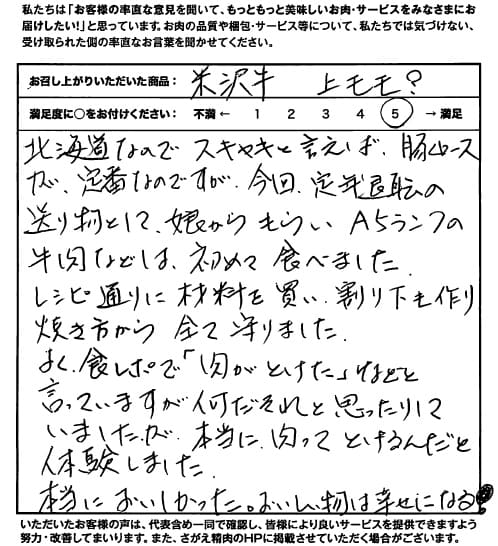 私たちは「お客様の率直な意見を聞いて、もっともっと美味しいお肉・サービスをみなさまに
お届けしたい!」と思っています。お肉の品質や梱包・サービス等について、私たちでは気づけない、
受け取られた側の率直なお言葉を聞かせてください。
お召し上がりいただいた商品: 米沢牛 上モモ?
満足度に○をお付けください: 不満 ← 1 2 3 4 5 → 満足
北海道なので スキヤキと言えば、豚ロース
が、定番なのですが、今回、定年退職の
送り物として、娘から もらい A5ランクの
牛肉などは、初めて 食べました。
レシピ通りに 材料を買い、割り下も作り
焼き方から 全て 守りました。
よく、食レポで「肉がとけた」などと
言っていますが何だそれと思ったりして
いましたが、本当に、肉って とけるんだと
体験しました。
本当においしかった。おいしい物は幸せになる
いただいたお客様の声は、代表含め一同で確認し、皆様により良いサービスを提供できますよう
努力・改善してまいります。また、さがえ精肉のHPに掲載させていただく場合がございます。